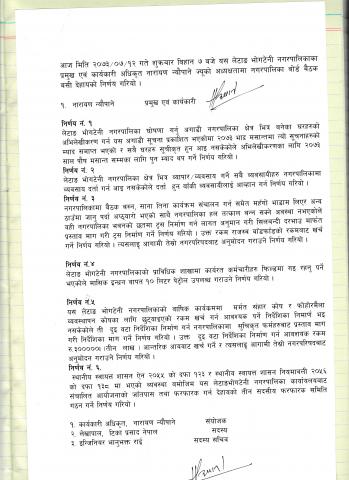 आज मिति २०७३/०७/१२ गते शुक्रबार बिहान ७ बजे यस लेटाङ भोगटेनी नगरपालिकाका
प्रमुख एवं कार्यकारी अधिकृत नारायण न्यौपाने ज्यूको अध्यक्षतामा नगरपालिका बोर्ड बैठक
बसी देहायको निर्णय गरियो ।
१. नारायण न्यौपाने प्रमुख एवं कार्यकारी
निर्णय नं. १
लेटाङ भोगटेनी नगरपालिका घोषणा गर्नु अगाडी नगरपालिका क्षेत्र भित्र बनेका घरहरुको
अभिलेखीकरण गर्न यस अगाडी सूचना प्रकाशित भएकोमा २०७३ भाद्र मसान्तमा त्यो सूचनाहरुको
म्याद समाप्त भएको र सबै घरहरु सूचीकृत हुन आइ नसकेकोले अभिलेखीकरणका लागि २०७३
साल पौष मसान्त सम्मका लागि पुन म्याद थप गर्ने निर्णय गरियो ।
निर्णय नं. २
लेटाङ भोगटेनी नगरपालिका क्षेत्र भित्र व्यापार/व्यवसाय गर्ने सबै व्यवसायीहरु नगरपालिकामा
व्यवसाय दर्ता गर्न आइ नसकेकोले दर्ता हुन बाँकी व्यवसायीलाई आव्हान गर्ने निर्णय गरियो ।
निर्णय नं. ३
नगरपालिकामा बैठक बस्न, साना तिना कार्यक्रम संचालन गर्न समेत महंगो भाडामा लिएर अन्य
ठाउँमा जानु पर्दा अप्ठ्यारो भएको साथै नगरपालिका हल तत्काल बन्न सक्ने अवस्था नभएकोले
यही नगरपालिका भवनको छतमा ट्रस निर्माण गर्न लागत अनुमान गरी सिलबन्दी दरभाउ मार्फत
प्रस्ताव माग गरी ट्रस निर्माण गर्ने निर्णय गरियो । उक्त रकम राजस्व बाँडफाँडको रकमबाट खर्च
गर्ने निर्णय गरियो । त्यसलाइ आगामी तेस्रो नगरपरिषदबाट अनुमोदन गराउने निर्णय गरियो ।
निर्णय नं.४
लेटाङ भोगटेनी नगरपालिकाको प्राविधिक शाखामा कार्यरत कर्मचारीहरु फिल्डमा गइ रहनु पर्ने
भएकोले मासिक इन्धन बापत १० लिटर पेट्रोल उपलब्ध गराउने निर्णय गरियो ।
निर्णय नं.५
यस लेटाङ भोगटेनी नगरपालिकाको वार्षिक कार्यक्रममा मर्मत संहार कोष र फोहोरमैला
व्यवस्थापन कोषका लागि छुट्याइएको रकम खर्च गर्न आवश्यक पर्ने निर्देशिका निर्माण भइ
नसकेकोले ती दुइ वटा निर्देशिका निर्माण गर्न नगरपालिकामा सूचिकृत फर्महरुबाट प्रस्ताव माग
गरी निर्देशिका निर्माण गर्ने निर्णय गरियो । उक्त दुइ वटा निर्देशिका निर्माण गर्न आवश्यक रकम
रु.३०००००। (तीन लाख । आन्तरिक आयबाट खर्च गर्ने र त्यसलाइ आगामी तेस्रो नगरपरिषदबाट
अनुमोदन गराउने निर्णय गरियो ।
निर्णय नं. ६.
स्थानीय स्वायत्त शासन ऐन २०५५ को दफा १२३ र स्थानीय स्वायत्त शासन नियमावली २०५६
को दफा १३८ मा भएको व्यवस्था बमोजिम यस लेटाङभोगटेनी नगरपालिका कार्यालयबाट
संचालित आयोजनाको जाँचपास तथा फरफारक गर्न देहायको तीन सदस्यीय फरफारक समिति
गठन गर्ने निर्णय गरियो ।
१. कार्यकारी अधिकृत, नारायण न्यौपाने संयोजक
२. लेखापाल, टिका प्रसाद नेपाल सदस्य
३. इन्जिनियर भानुभक्त राई सदस्य सचिव